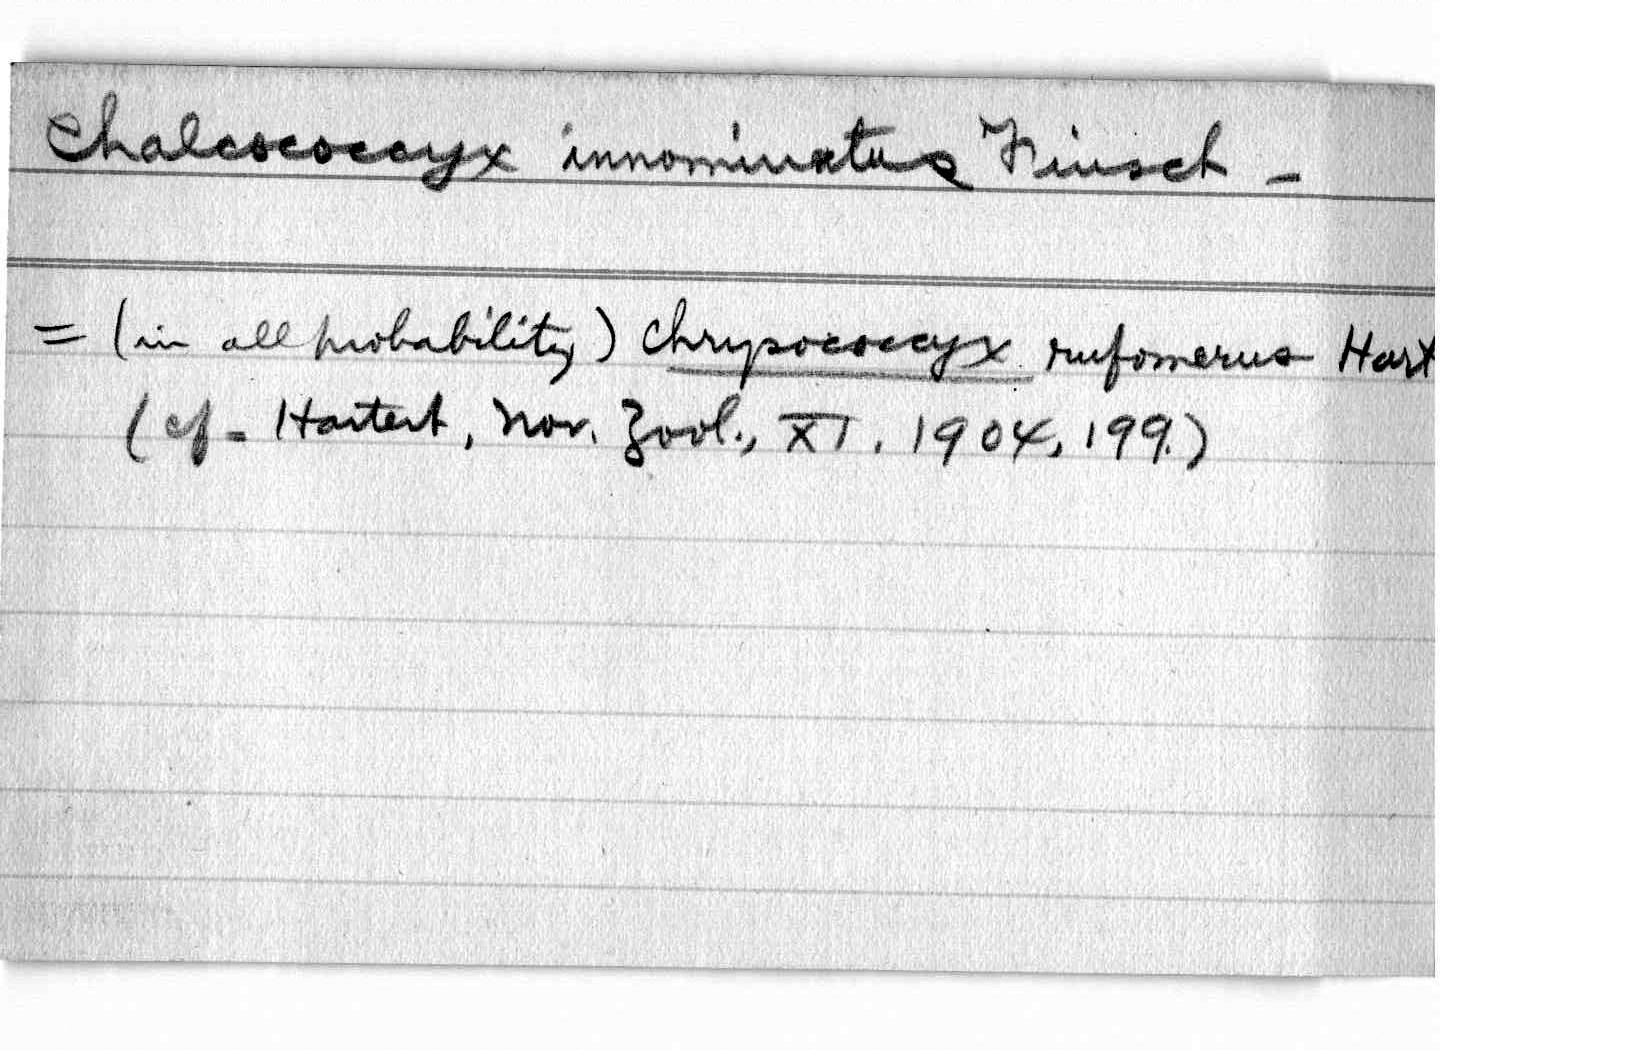 Chalcococcyx innominatus Finsch -
= (in all probability) Chrysococcyx rufomerus Hart
(cf. Hartert, Nov. Zool., XI, 1904, 199.)